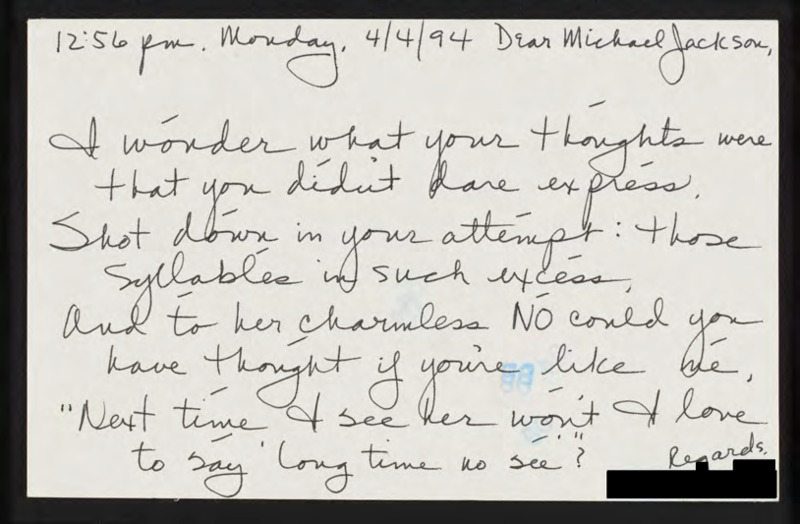 12:56 pm. Monday, 4/4/94 Dear Michael Jackson,
I wónder what your thóughts were
that you dídn't dare expréss.
Shot dówn in your attémpt: those
Sýllables in such excéss,
And tó her chármless NÓ could you
have thóught if you're like mé,
"Next tíme I sée her wón't I love
to sáy 'long time no sée'"?
Regards,